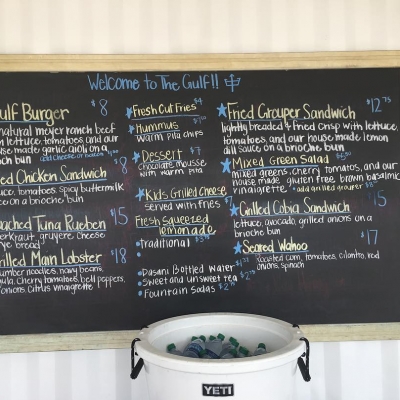 Welcome to The Gulf!!
Gulf Burger $8
natural meyer ranch beef
lettuce, tomatoes, and our
house made garlic aioli on a
bun add cheese or bacon
Fried Chicken Sandwich $8
lettuce, tomatoes, spicy buttermilk
on a brioche bun
Tuna Rueben $15
sauerkraut, gruyere, cheese
rye bread
Grilled Main Lobster $18
cucumber noodles, navy beans,
arugula, cherry tomatoes, bell peppers,
onions, citrus vinaigrette
Fresh Cut Fries $4
Hummus
warm pita chips
Dessert $7
chocolate mousse
with warm pita
Kids Grilled Cheese
served with fries $7
Fresh Squeezed
lemonade
traditional
Dasani Bottled Water
Sweet and unsweet tea
Fountain Sodas
Fried Grouper Sandwich $12
lightly breaded & fried crisp with lettuce,
tomatoes and our house made lemon
dill sauce on a brioche bun
Mixed Green Salad
mixed greens, cherry tomatoes, and our
house made gluten free brown balsamic
vinaigrette add grilled grouper
Grilled Cobia Sandwich $15
lettuce, avocado, grilled onions on a
brioche bun
Seared Wahoo $17
Roasted corn, tomatoes, cilantro, red
onions, spinach
YETI